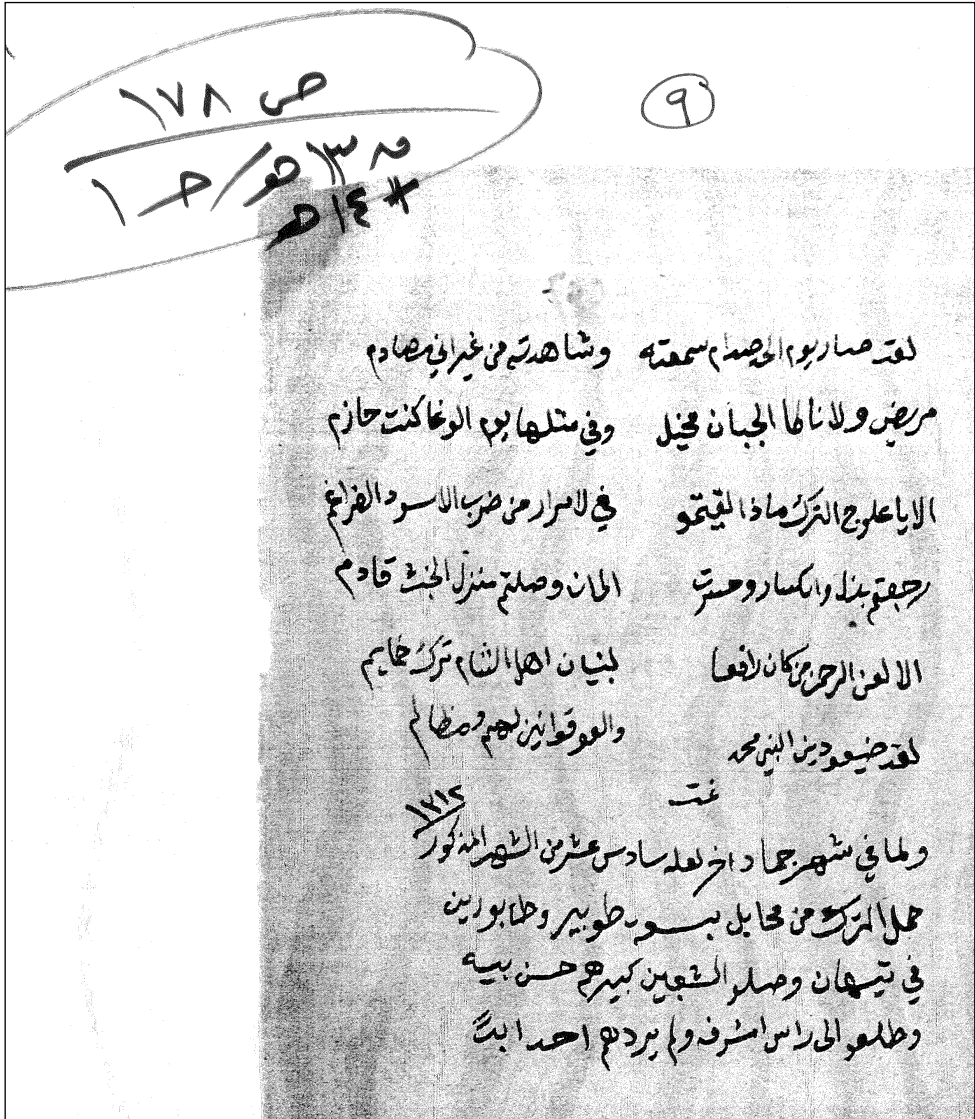 ص ١٧٨
٩
ق ١٣هـ / جـ ١
١٤هـ
لقد صار يوم الحد صدام سمعته وشاهدته من غير اني مصادم
مريض ولانا كا الجبان مخيل وفي مثلها يوم الوغا كنت حازم
الا يا علوج الترك ماذا لقيتمو في لامرار من ضرب الاسود الضراغم
رجعتم بذل وانكسار وحسرت الى ان وصلتم منزل الخبث قادم
الا لعن الرحمن من كان رافعا لبنيان اهل الشام ترك خمايم
لقد ضيعو دين النبي محمد والفو قوانين لهم ومظالم
تمت
١٣١٢
ولما في شهر جماد اخر لعله سادس عشر من الشهر المذكور
حمل الترك من محايل طوبير وطابورين
في تيهان وصلو الشعبين كبيرهم حسن بيه
وطلعو الى راس امشرف ولم يردهم احد ابدً